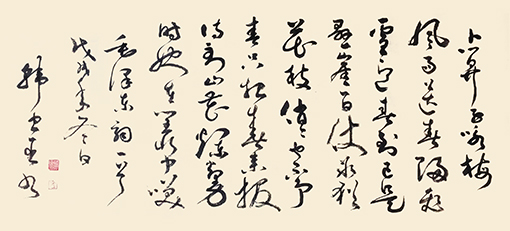 卜算子咏梅
风雨送春归飞
雪迎春到已是
悬崖百丈冰犹
花枝俏俏也不争
春只把春来报
待到山花烂漫
时她在丛中笑
毛泽东词一首
戊戌年冬日